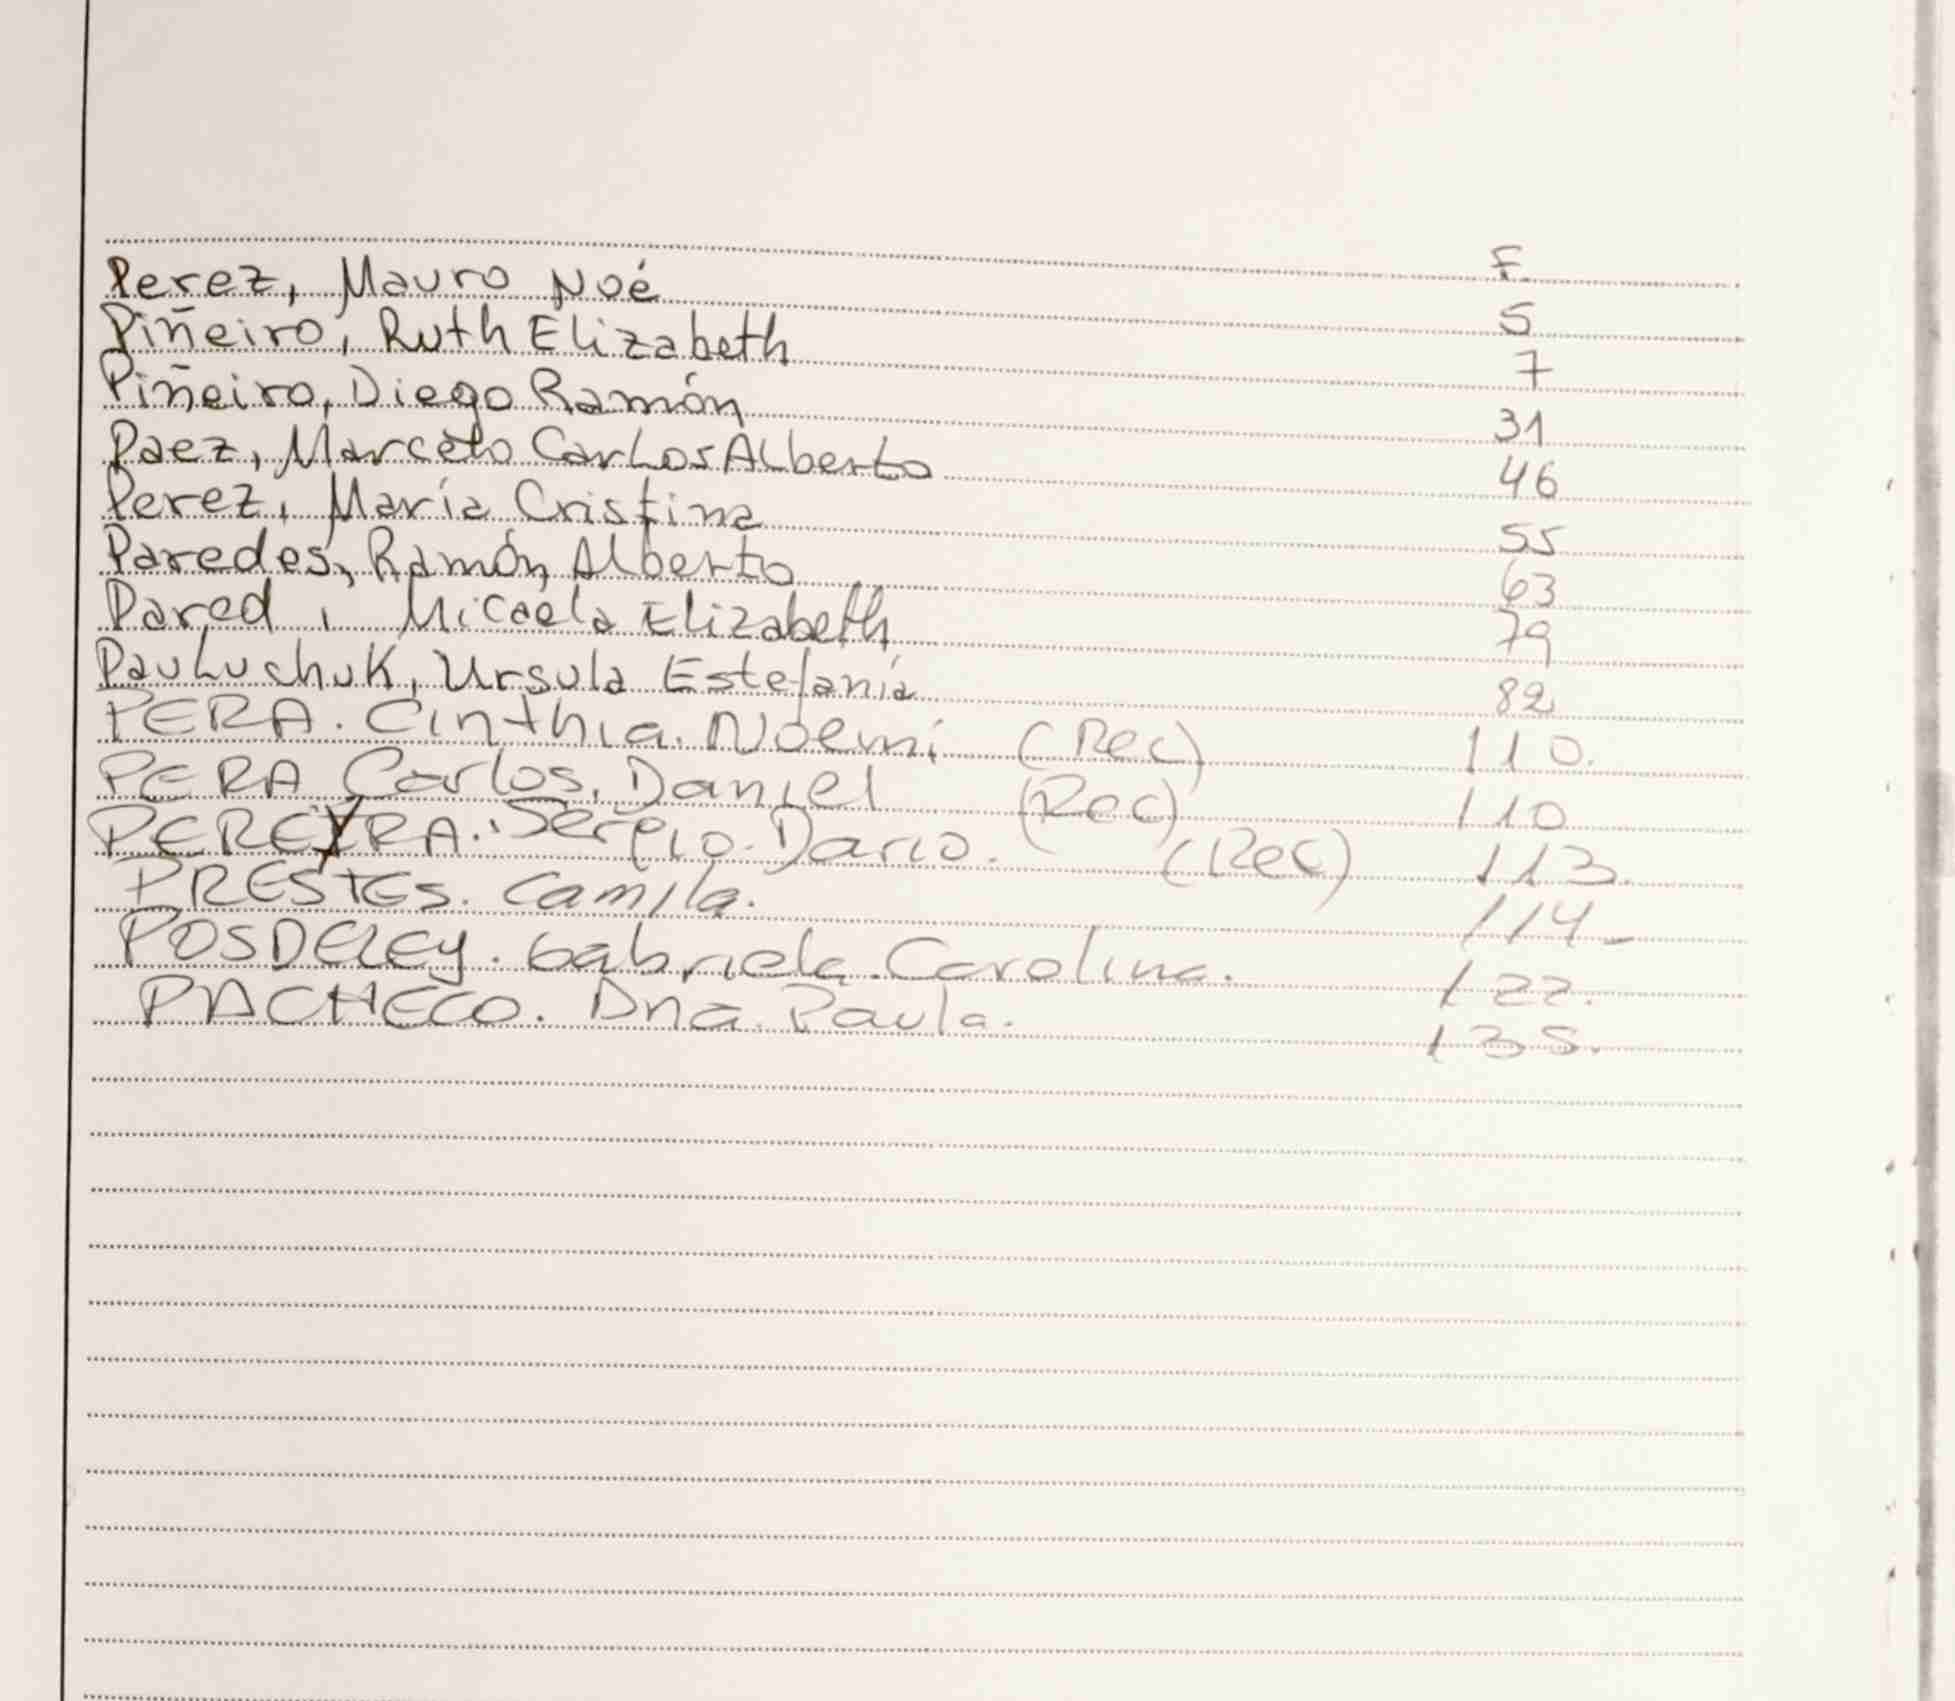 F.
Perez, Mauro Noé 5
Piñeiro, Ruth Elizabeth 7
Piñeiro, Diego Ramón 31
Paez, Marcelo Carlos Alberto 46
Perez, María Cristina 55
Paredes, Ramón Alberto 63
Pared, Micaela Elizabeth 79
Pauluchuk, Ursula Estefanía 82
PERA. Cinthia. Noemi (Rec) 110.
PERA Carlos. Daniel (Rec) 110
PEREYRA. Sergio. Dario. (Rec) 113.
PRESTES. Camila. 114-
Gabriela. Carolina. 122.
PACHECO. Ana. Paula. 135.